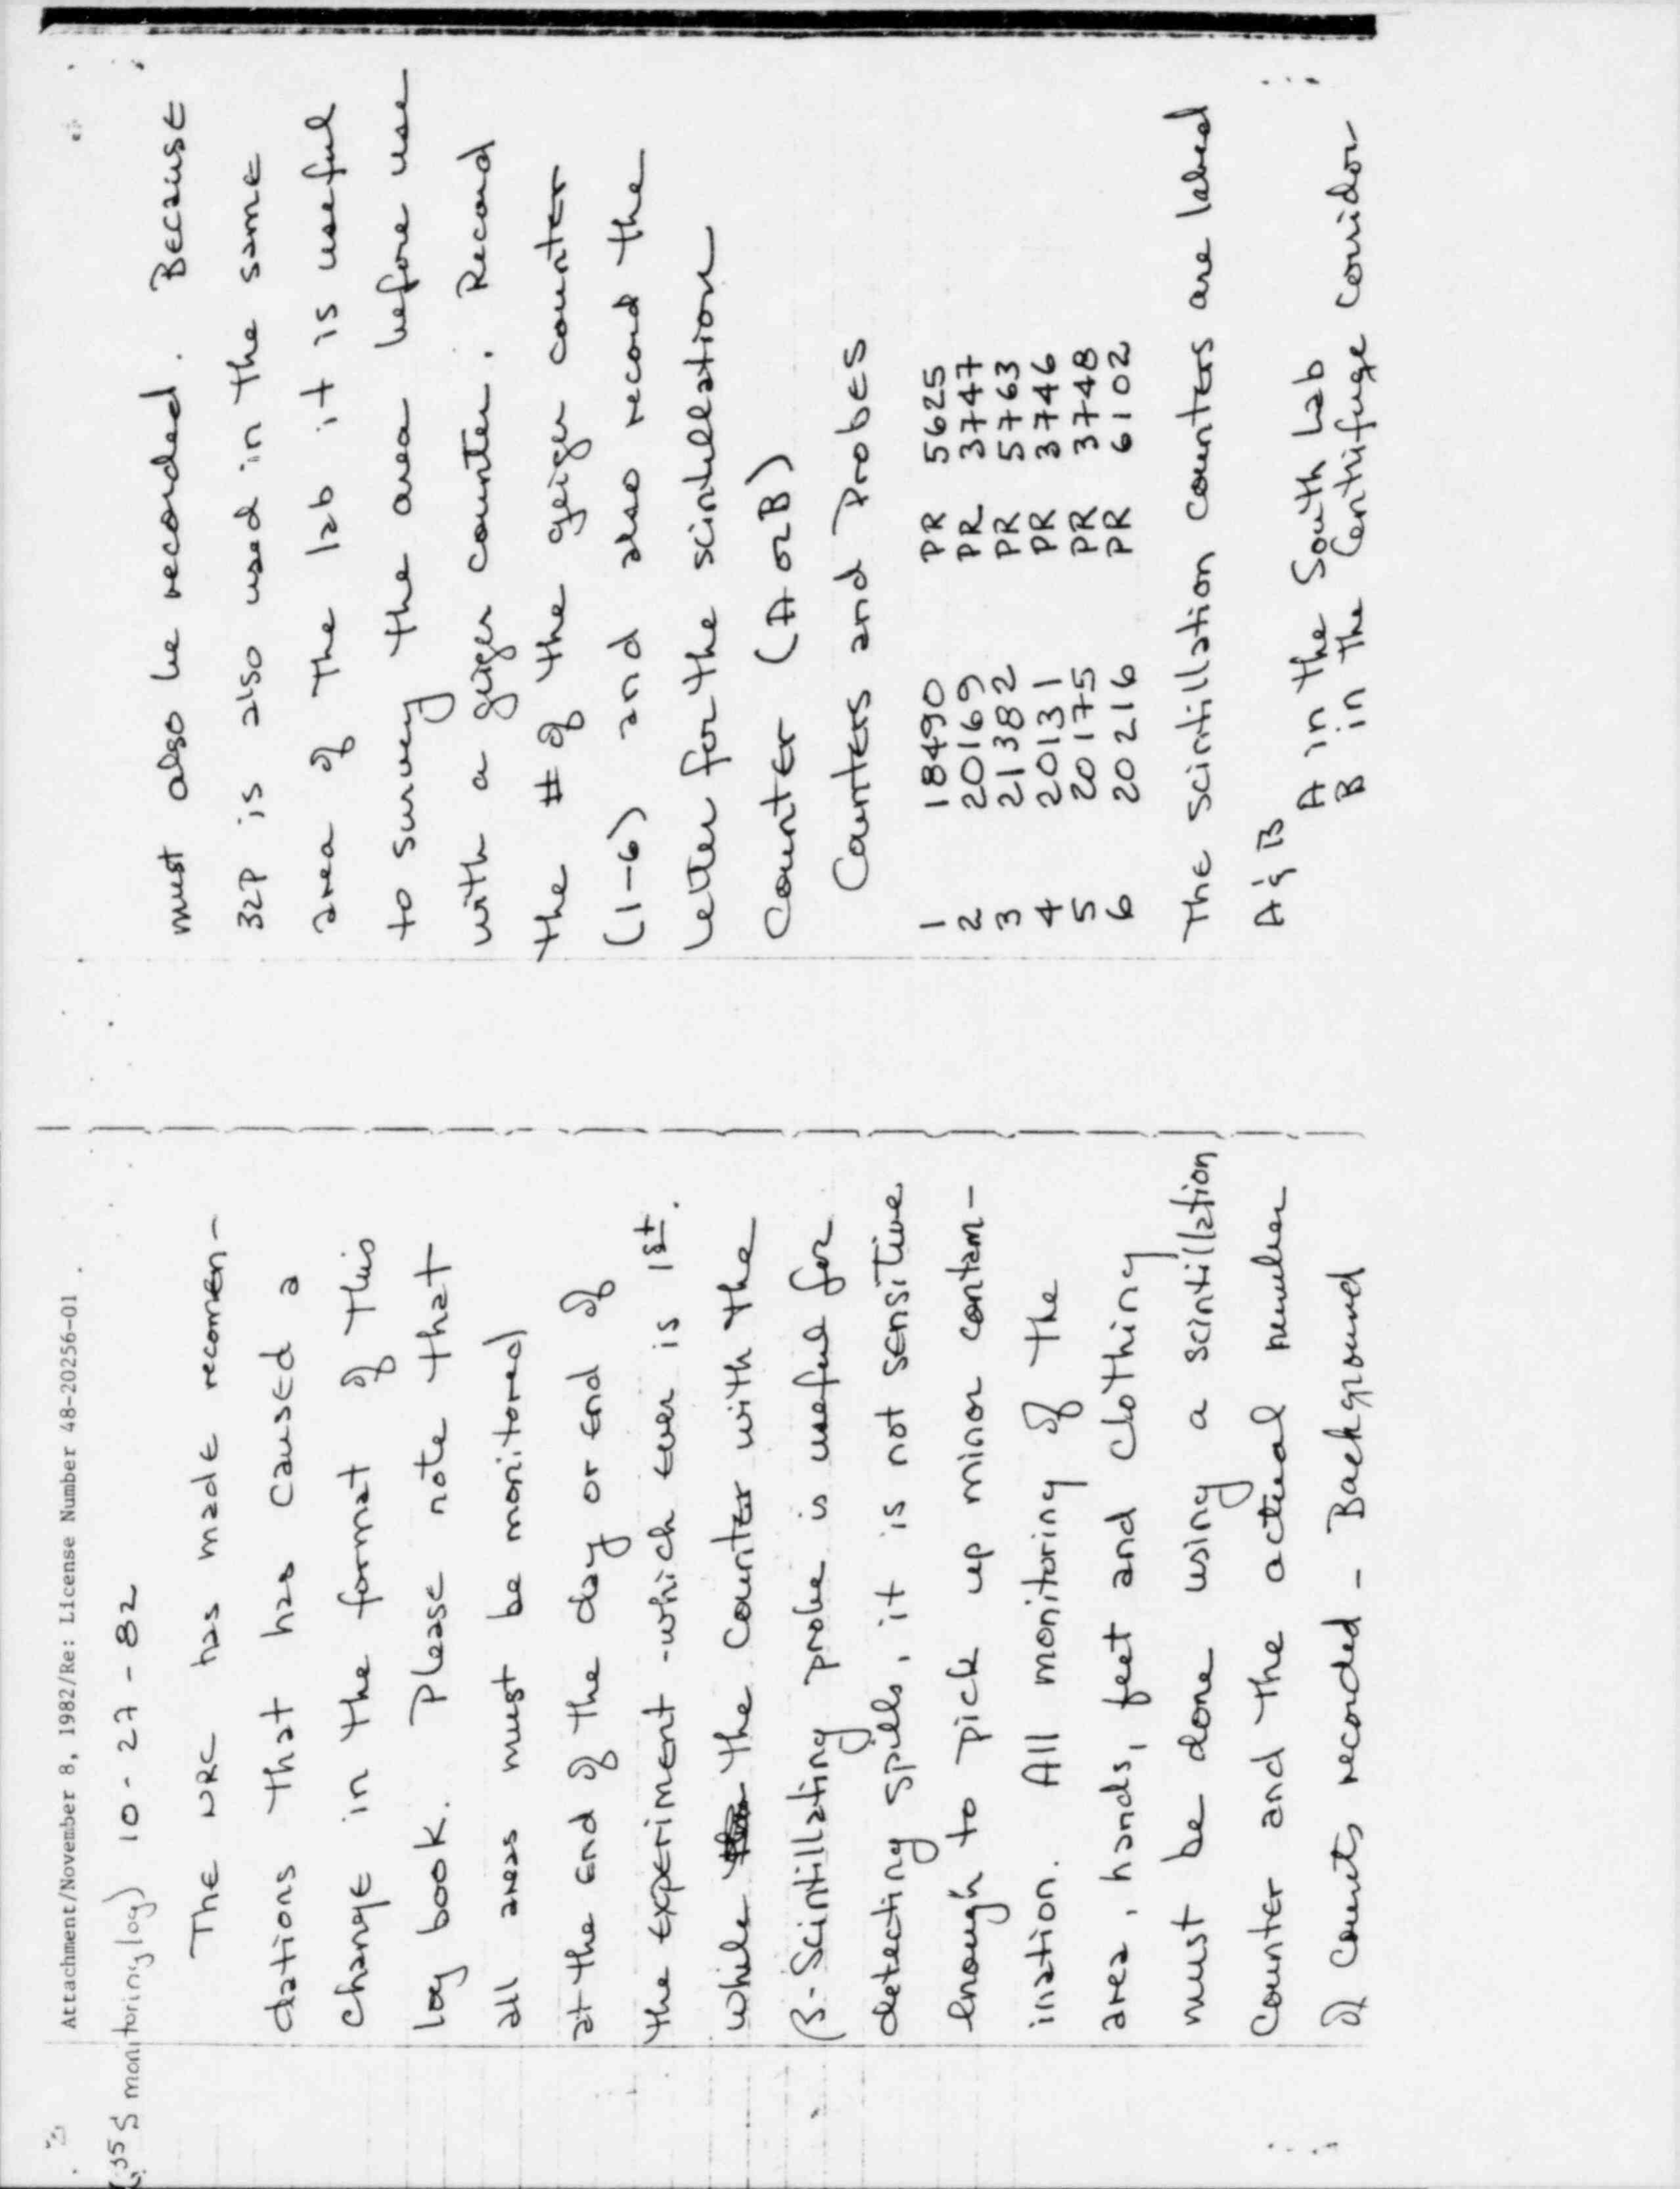 Attachment/November 8, 1982/Re: License Number 48-20256-01
(35S monitoring log) 10-27-82
The NRC has made recomen-
dations that has caused a
change in the format of this
log book. Please note that
all areas must be monitored
at the end of the day or end of
the experiment - which ever is 1st.
While the counter with the
β-Scintillating probe is useful for
detecting spills, it is not sensitive
enough to pick up minor contam-
ination. All monitoring of the
area, hands, feet and clothing
must be done using a scintillation
counter and the actual number
of counts recorded - Background
must also be recorded. Because
32P is also used in the same
area of the lab it is useful
to survey the area before use
with a geiger counter. Record
the # of the geiger counter
(1-6) and also record the
letter for the scintillation
counter (A or B)
Counters and Probes
1 18490 PR 5625
2 20169 PR 3747
3 21382 PR 5763
4 20131 PR 3746
5 20175 PR 3748
6 20216 PR 6102
The scintillation counters are labeled
A & B
A in the South Lab
B in the Centrifuge corridor